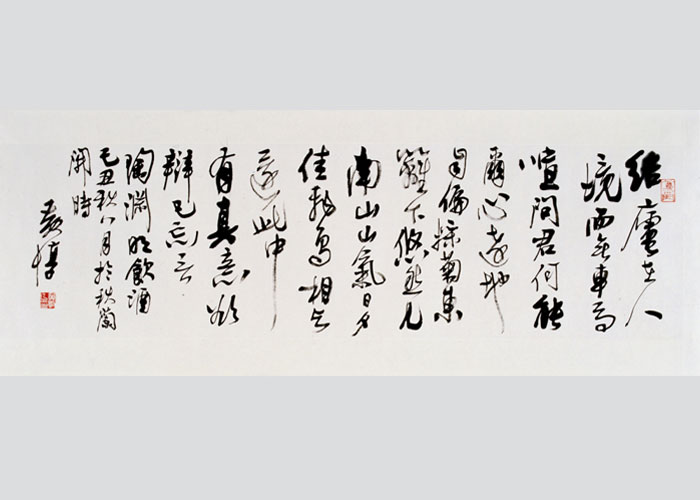 結廬在人
境而無車馬
喧問君何能
爾心遠地
自偏採菊東
籬下悠然見
南山山氣日夕
佳飛鳥相與
還此中
有真意欲
辯已忘言
陶淵明飲酒
己丑秋八月於秋蘭
開時
黃惇